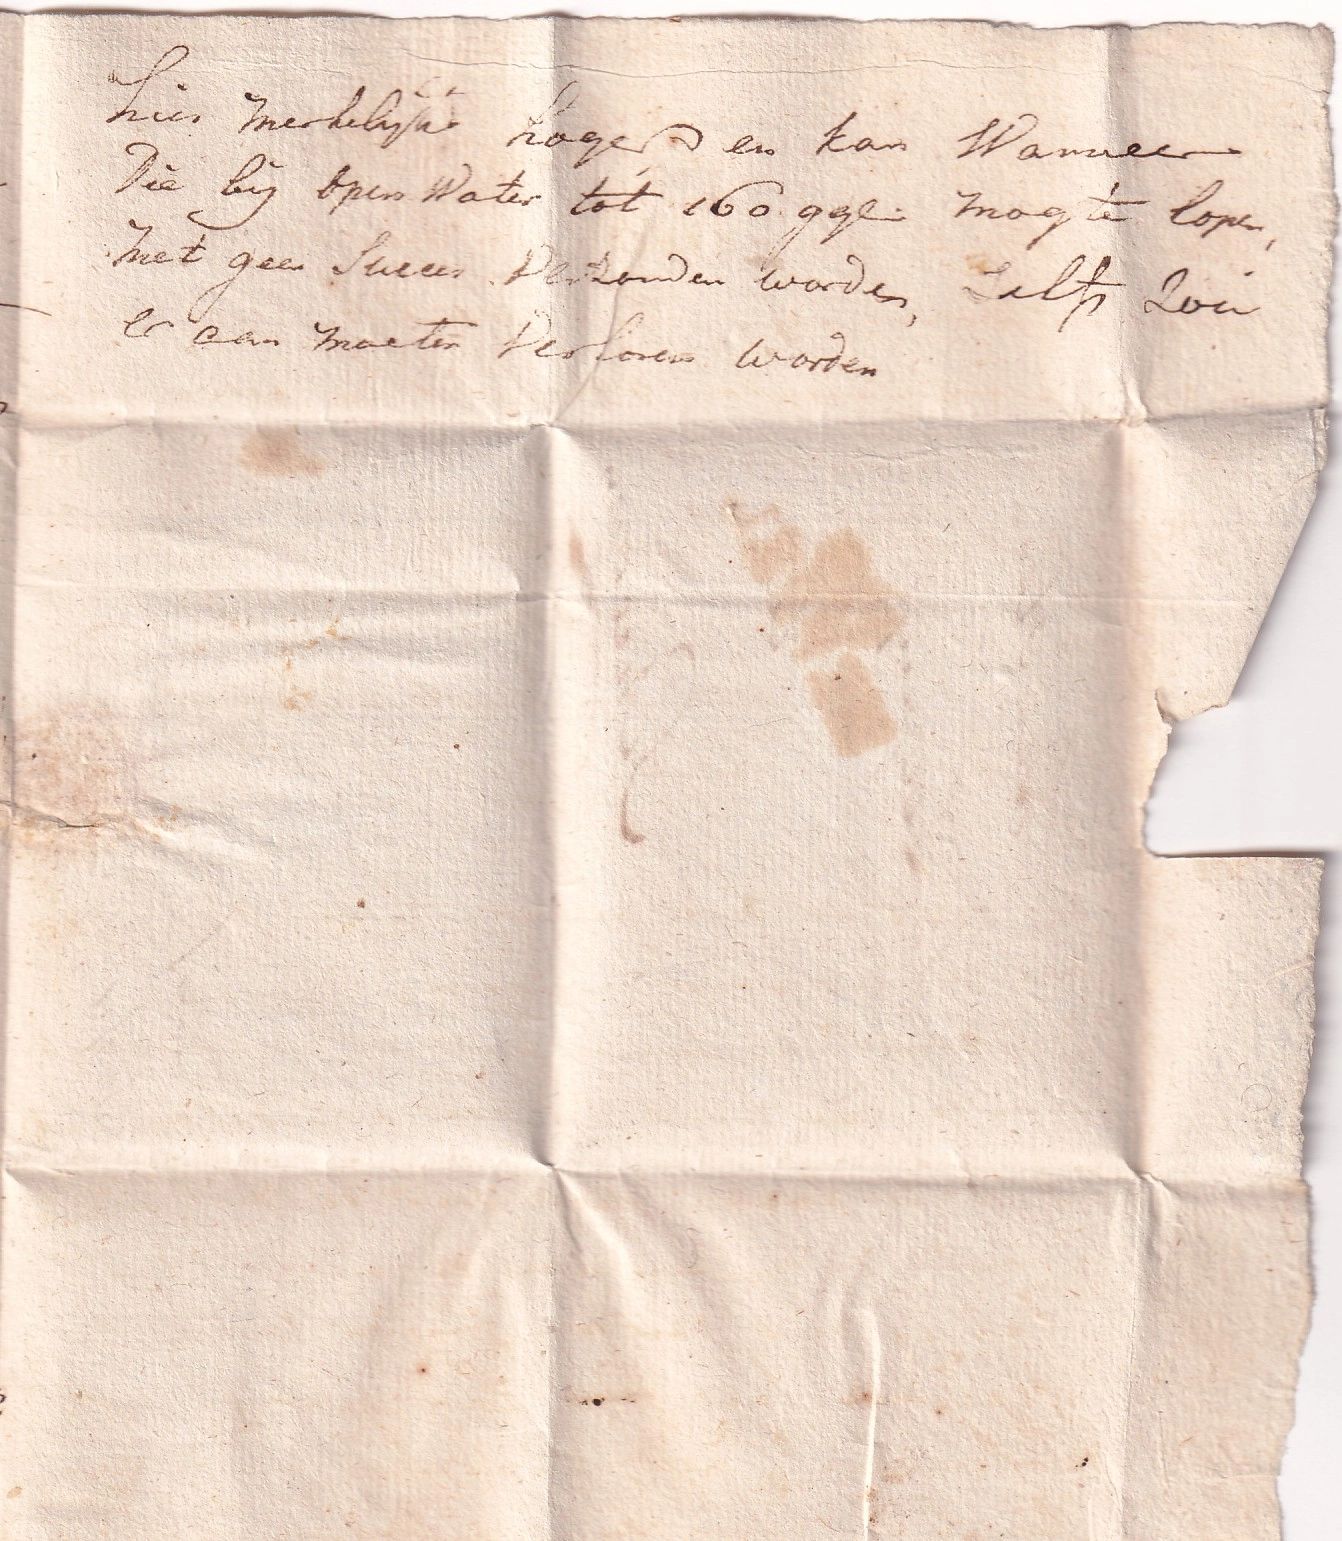 hier merkelijk hoger en kan Wanneer
Die bij open Water tot 160 ggl. mogte lopen,
met geen Succes Verzonden worden, Zelfs Zou
er aan moeten Verloren worden